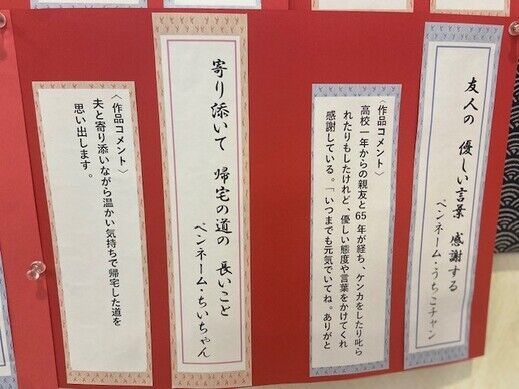 友人の 優しい言葉 感謝する
ペンネーム・うちこチャン
〈作品コメント〉
高校一年からの親友と65年が経ち、ケンカをしたり叱ら
れたりもしたけれど、優しい態度や言葉をかけてくれ
感謝している。「いつまでも元気でいてね。ありがと
寄り添いて 帰宅の道の 長いこと
ペンネーム・ちいちゃん
〈作品コメント〉
夫と寄り添いながら温かい気持ちで帰宅した道を
思い出します。